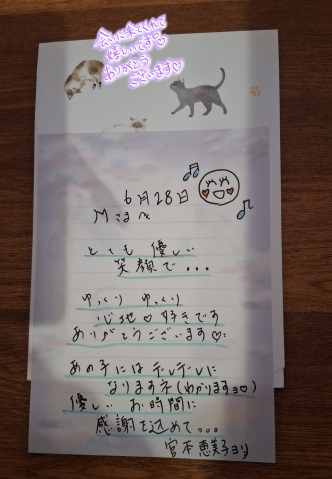 会いに来てくれて
嬉しいです♡
ありがとう
ございます♡
6月28日
Mさまへ
とても 優しい
笑顔で...
ゆっくり ゆっくり
心地♡好きです
ありがとうございます♡
あの子には デレデレに
なりますネ(わかりますョ♡)
優しい お時間に
感謝を込めて...
宮本恵美子ョリ